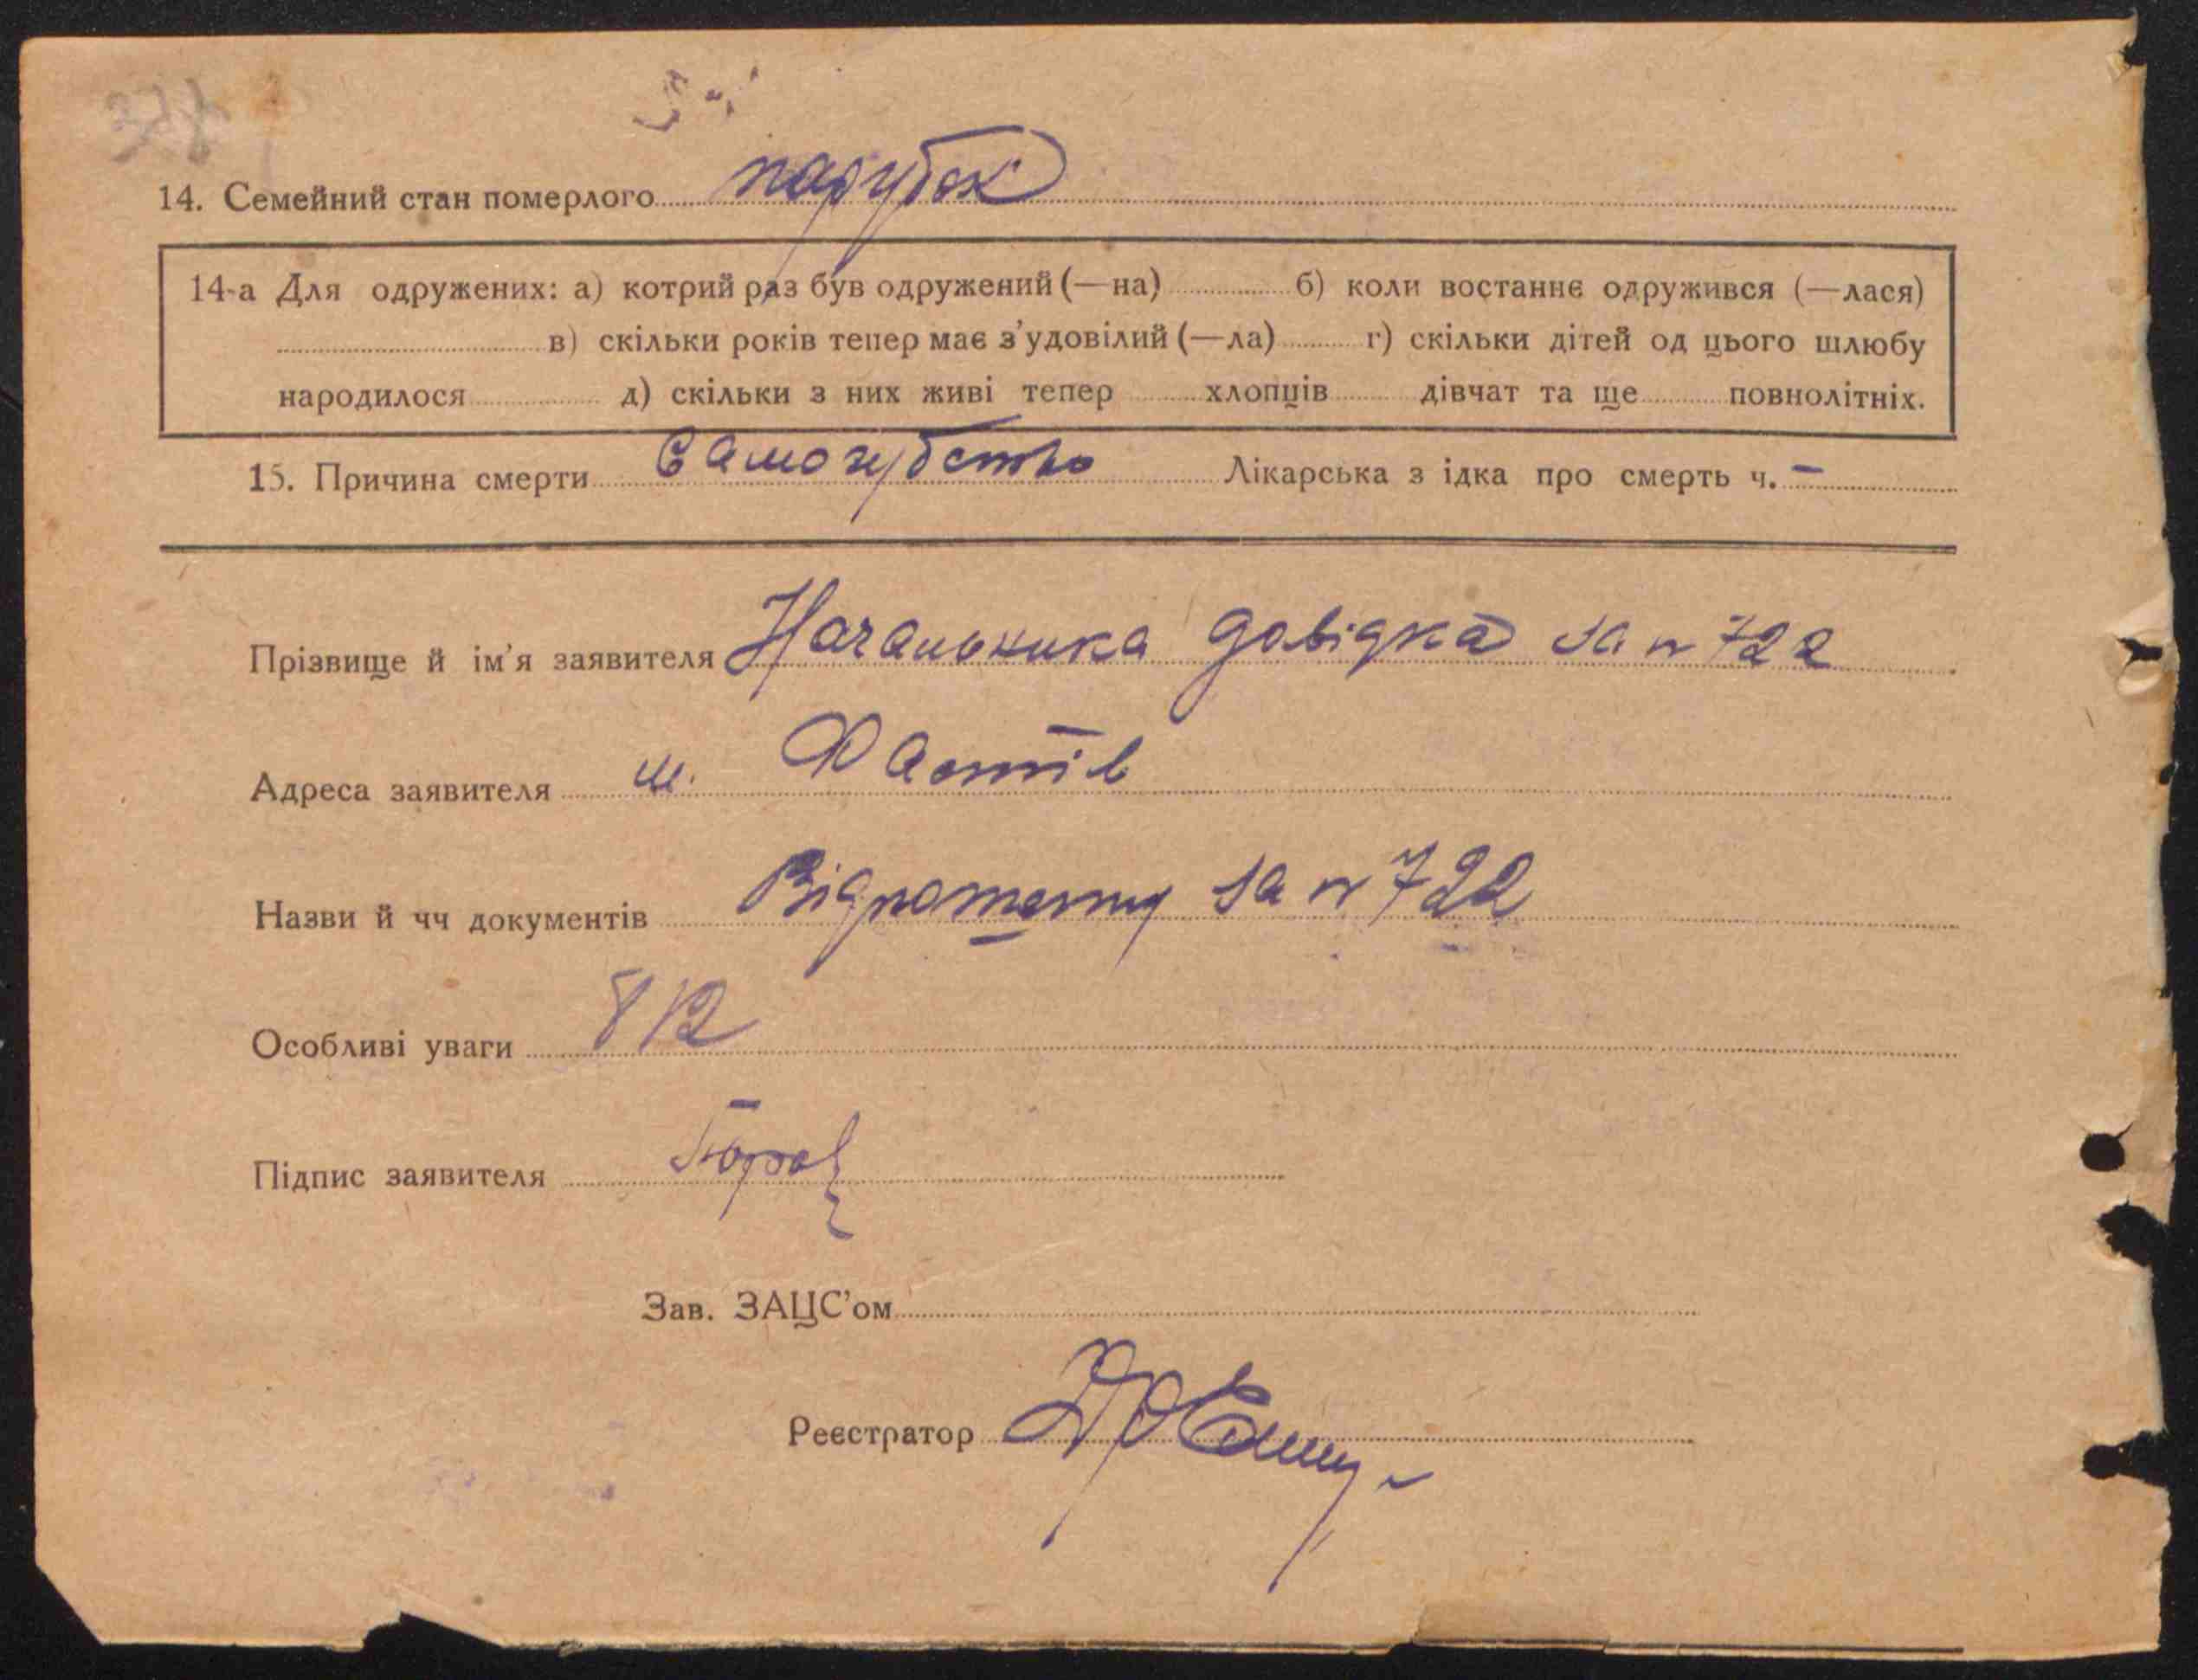 14. Семейний стан померлого парубок
14-а Для одружених: а) котрий раз був одружений (—на) б) коли востаннє одружився (—лася)
в) скільки років тепер має з'удовілий (—ла) г) скільки дітей од цього шлюбу
народилося д) скільки з них живі тепер хлопців дівчат та ще повнолітніх.
15. Причина смерти Самогубство Лікарська з ідка про смерть ч. —
Прізвище й ім'я заявителя Начальника довідка за n 722
Адреса заявителя м. Фастів
Назви й чч документів за n 722
Особливі уваги 8/2
Підпис заявителя
Зав. ЗАЦС'ом
Реєстратор